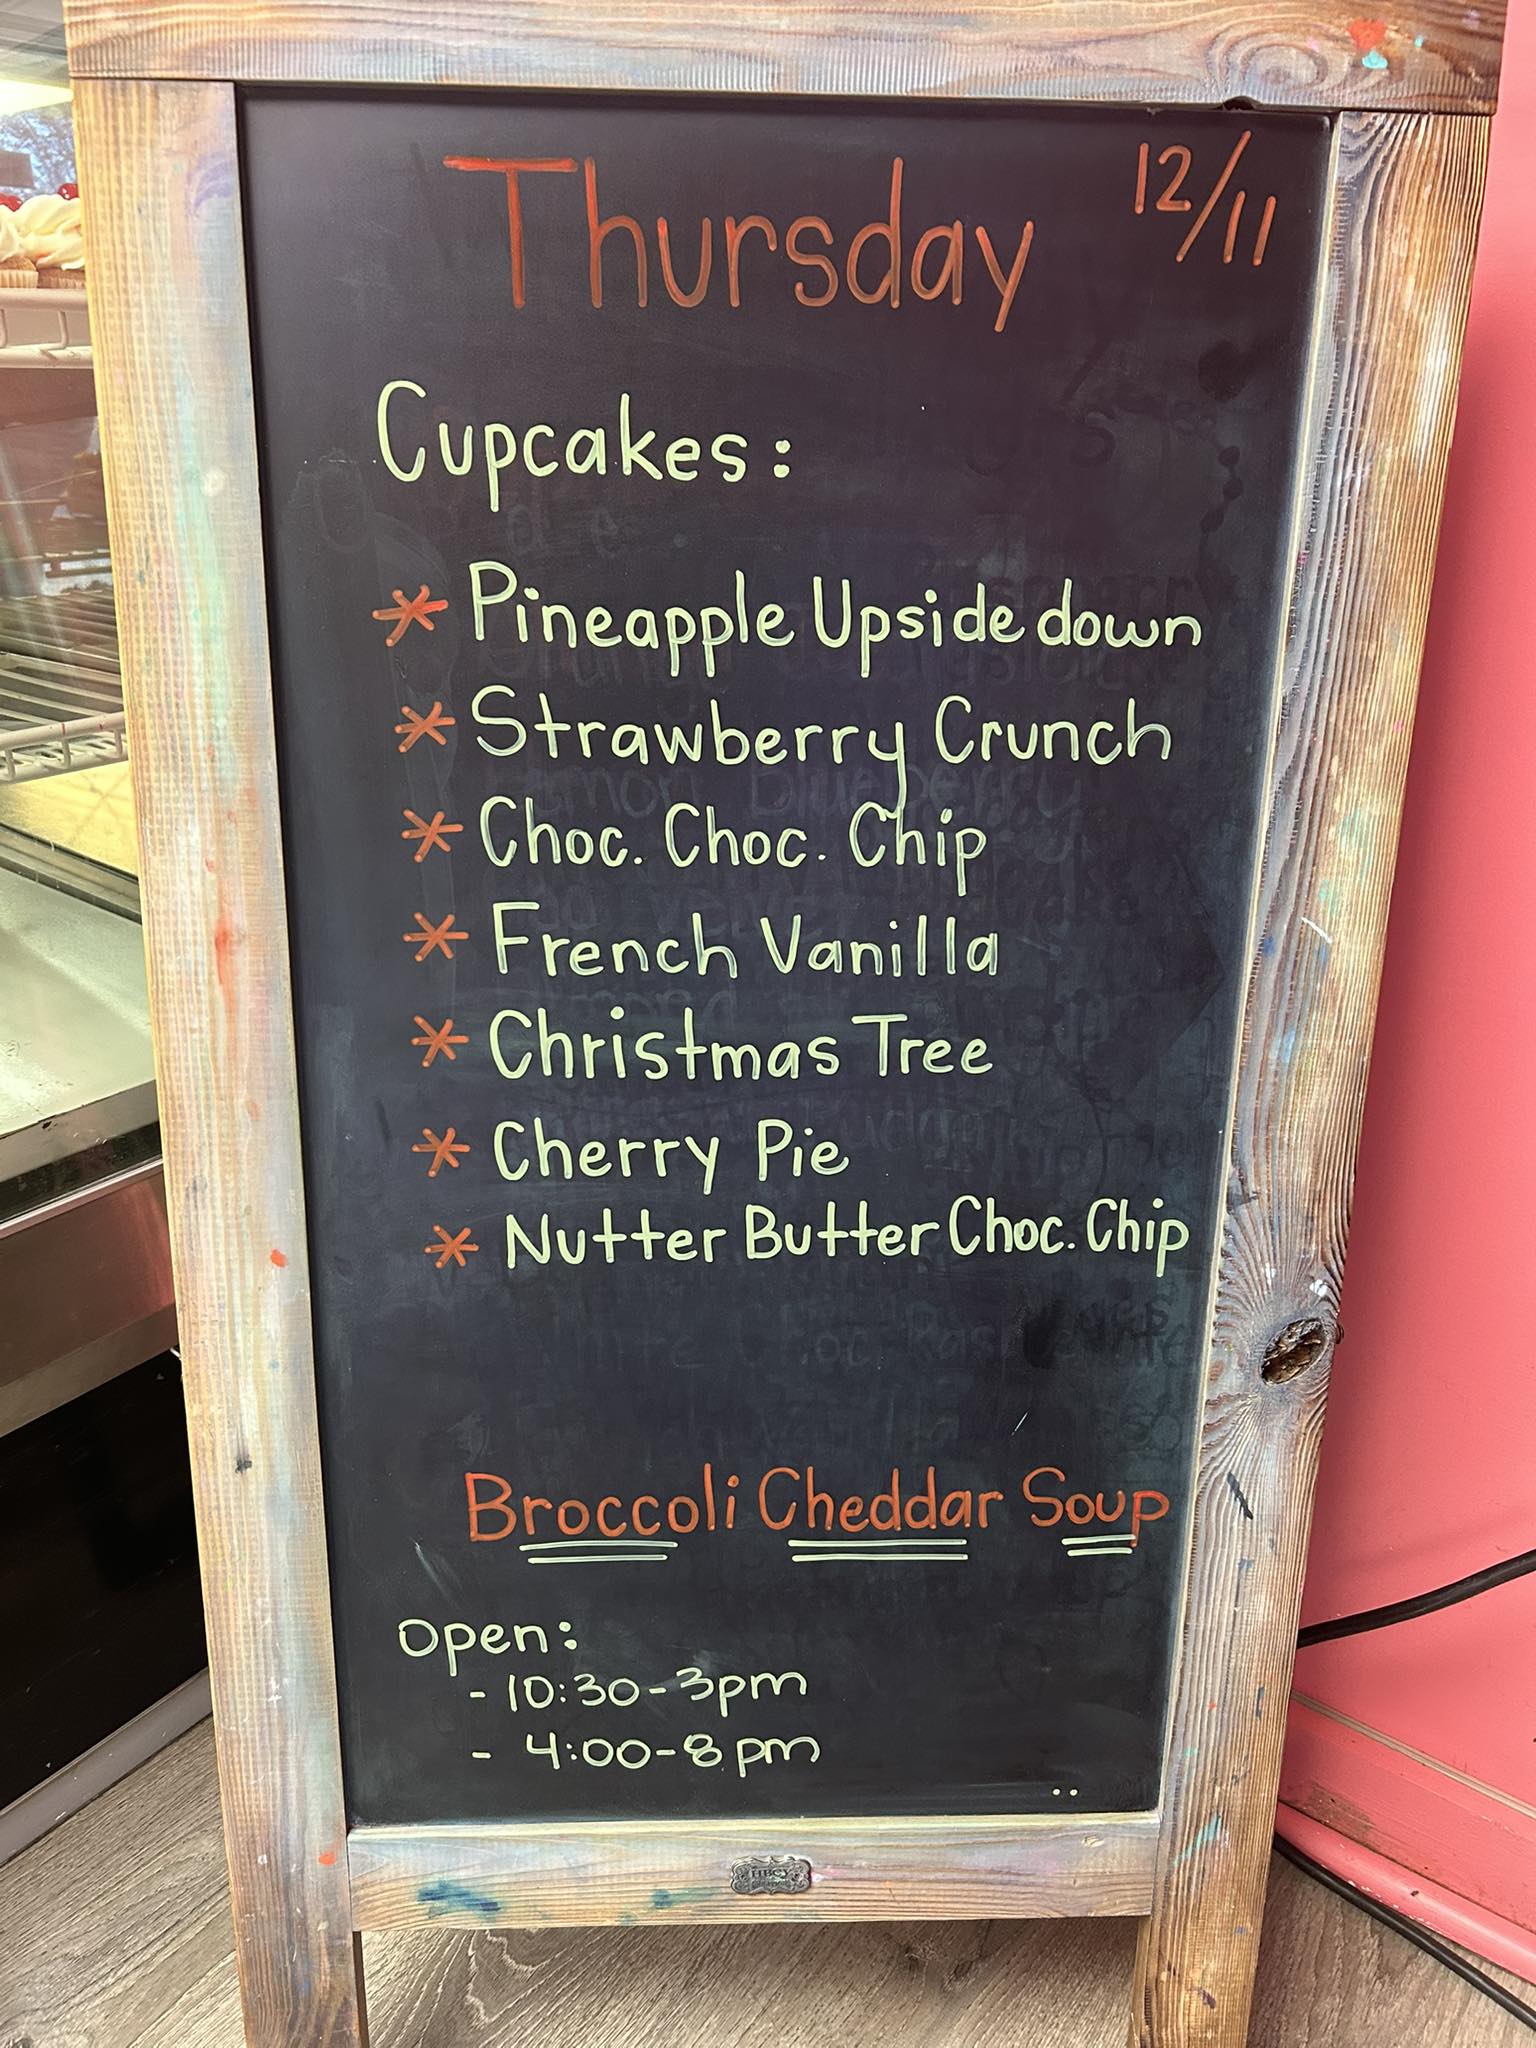 Thursday
12/11
Cupcakes:
* Pineapple Upside down
* Strawberry Crunch
* Choc. Choc. Chip
* French Vanilla
* Christmas Tree
* Cherry Pie
* Nutter Butter Choc. Chip
Broccoli Cheddar Soup
Open:
- 10:30-3pm
- 4:00-8pm
HBCY